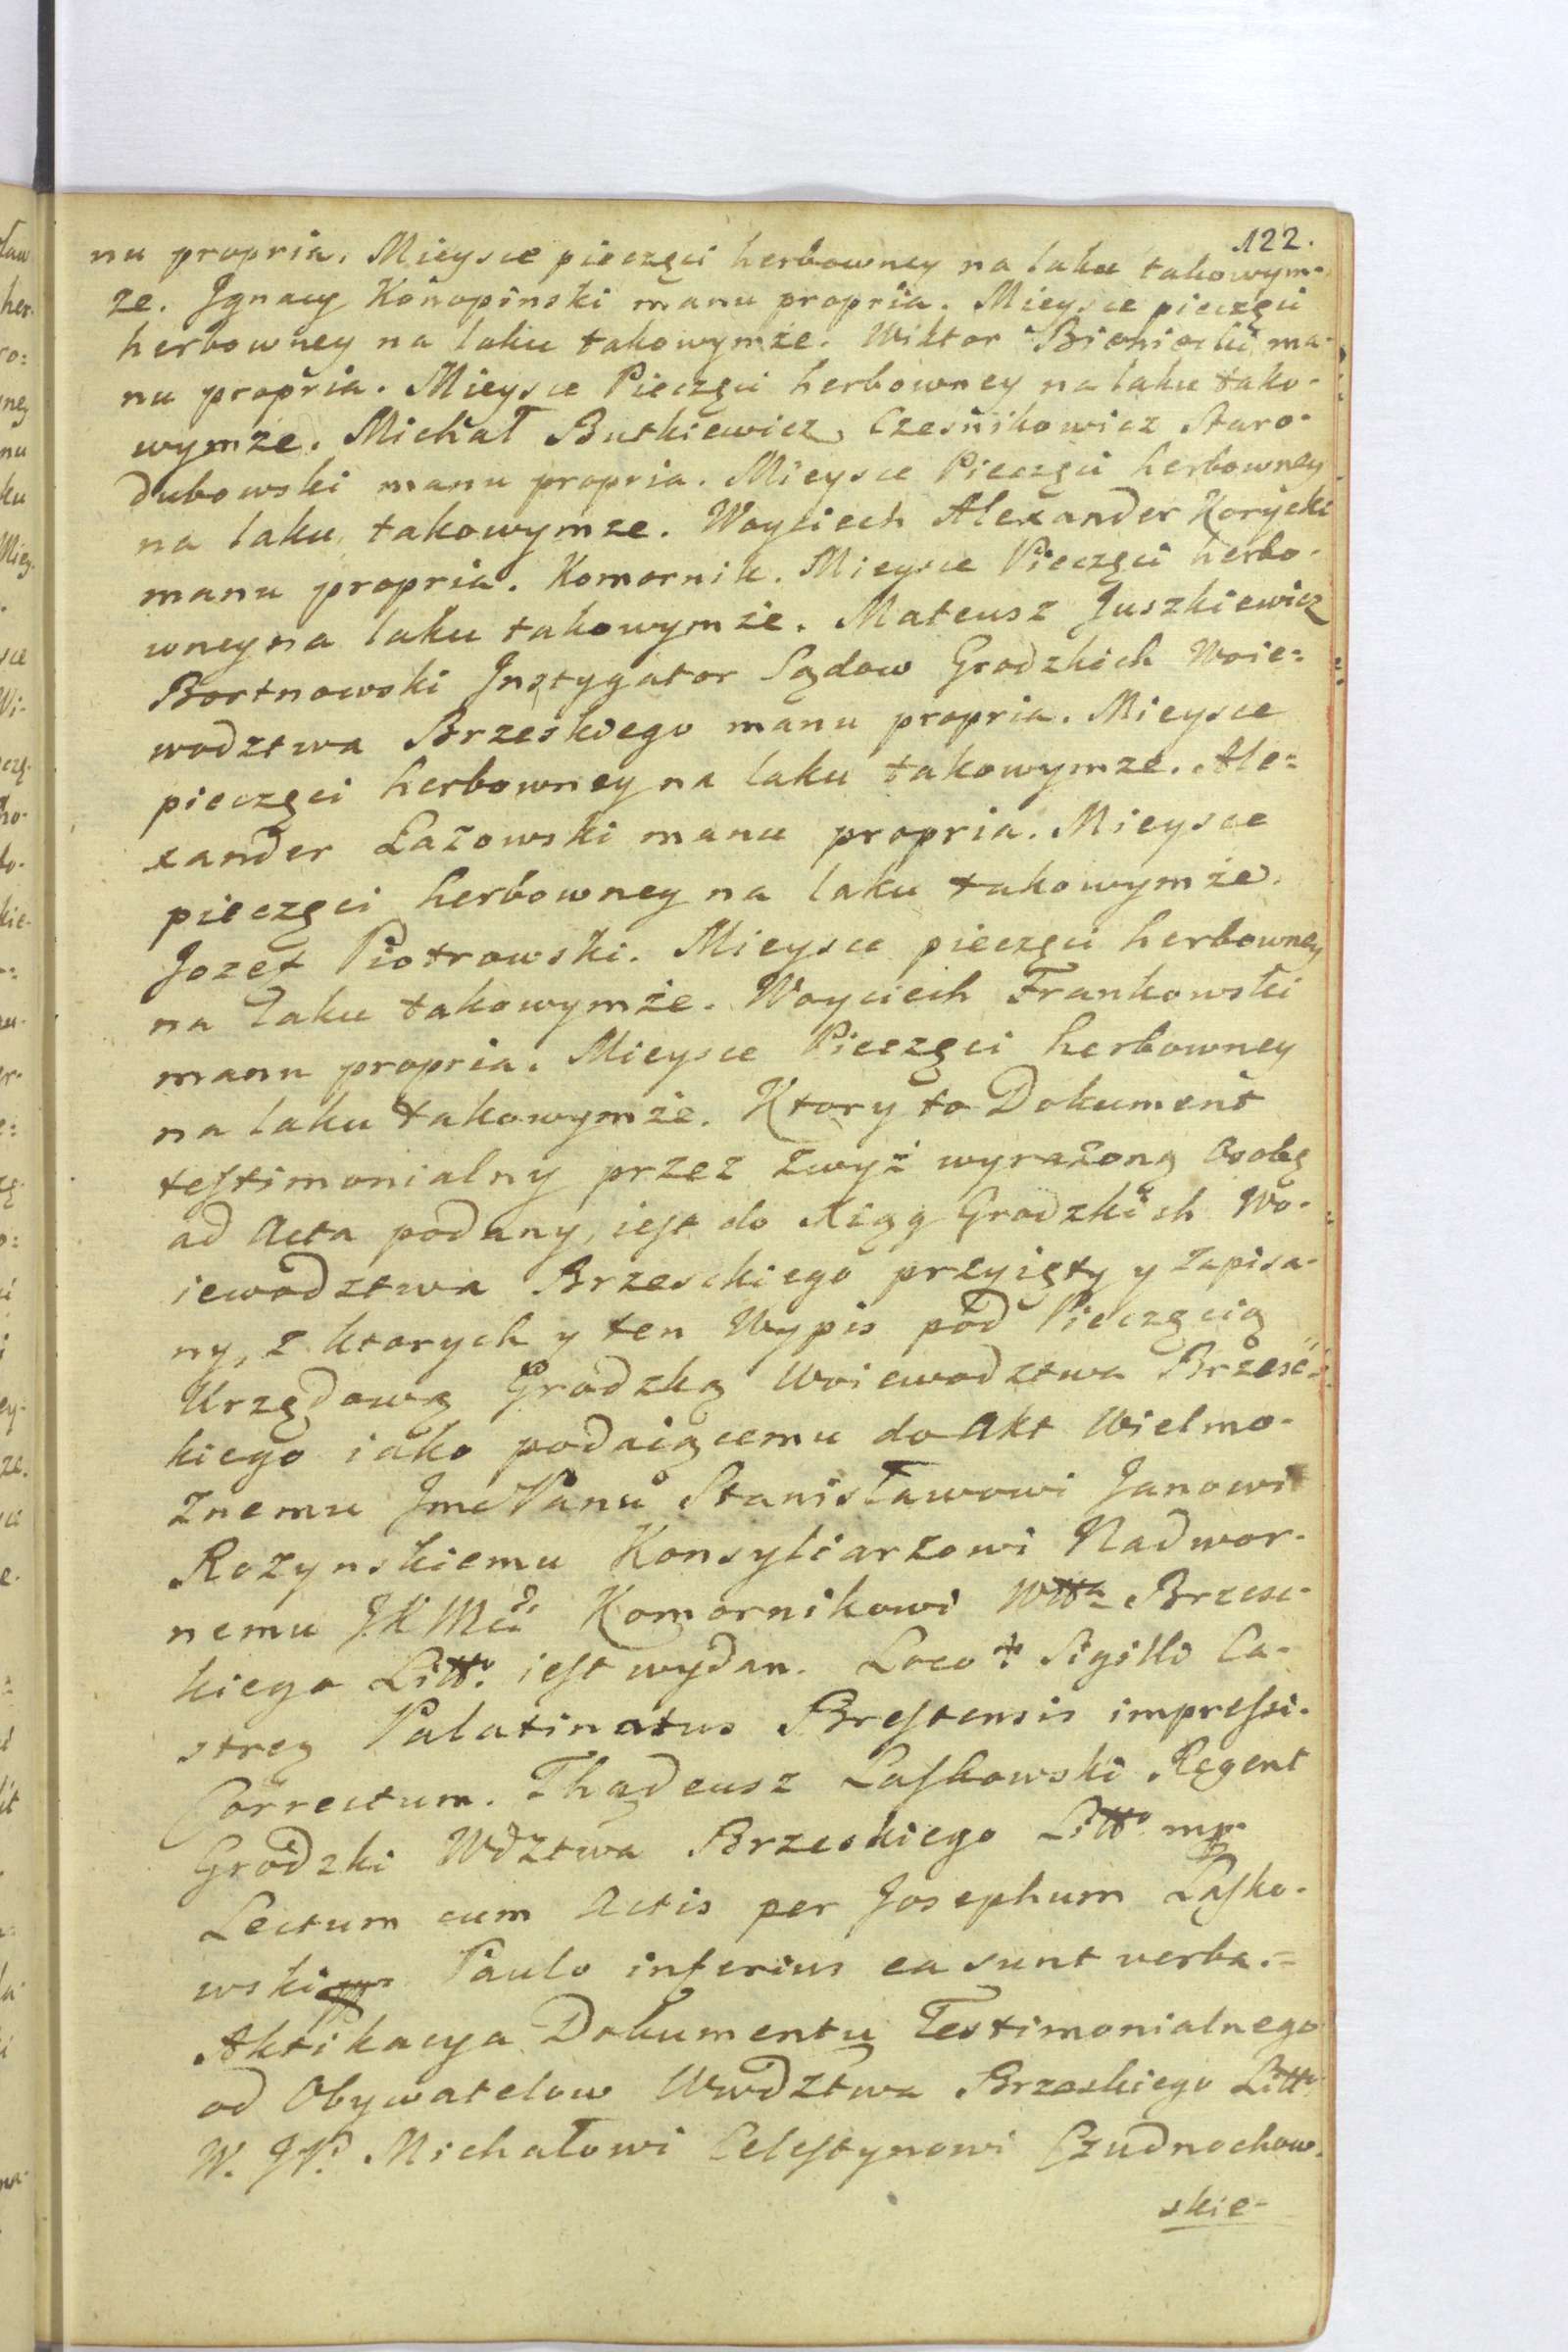 122.
nu propria. Mieysce pieczęci herbowney na laku takowym-
że. Jgnacy Konopinski manu propria. Mieysce pieczęci
herbowney na laku takowymże. Wiktor Bieniecki ma-
nu propria. Mieysce Pieczęci herbowney na laku tako-
wymże. Michał Butkiewicz Czesnikowicz Staro-
dubowski manu propria. Mieysce Pieczęci herbowney
na laku takowymze. Woyciech Alexander Korycki
manu propria. Komornik. Mieysce Pieczęci herbo-
wney na laku takowymże. Mateusz Juszkiewicz
Bortnowski Jnstygator Sądow Grodzkich Woie=
wodztwa Brzeskiego manu propria. Mieysce
pieczęci herbowney na laku takowymże. Ale=
xander Łazowski manu propria. Mieysce
pieczęci herbowney na laku takowymże.
Jozef Piotrowski. Mieysce pieczęci herbowney
na laku takowymże. Woyciech Frankowski
manu propria. Mieysce Pieczęci herbowney
na laku takowymże. Ktory to Dokument
testimonialny przez zwyż wyrażoną Osobę
ad Acta podany, iest do Xiąg Grodzkich Wo-
iewodztwa Brzesckiego przyięty y zapisa-
ny, z ktorych y ten Wypis pod Pieczęcią
Urzędową Grodzką Woiewodztwa Brześć-
kiego iako podaiącemu do Akt Wielmo-
żnemu JmcPanu Stanisławowi Janowi
Rożynskiemu Konsyliarzowi Nadwor-
nemu JKMci Komornikowi Wttа Brzesc-
kiego Litt: iest wydan. Loco Sigilli Ca-
strеn Palatinatus Brestensis impressi.
Correctum. Thadeusz Laskowski Regent
Grodzki Wdztwa Brzeskiego Litt: mp.
Lectum cum Actis per Josephum Lasko-
wski mp Paulo inferius ea sunt verba.=
Aktikacya Dokumentu Testimonialnego
od Obywatelow Wwdztwa Brzeskiego Litt:
W. JP. Michałowi Celestynowi Czudnochow-
skie-